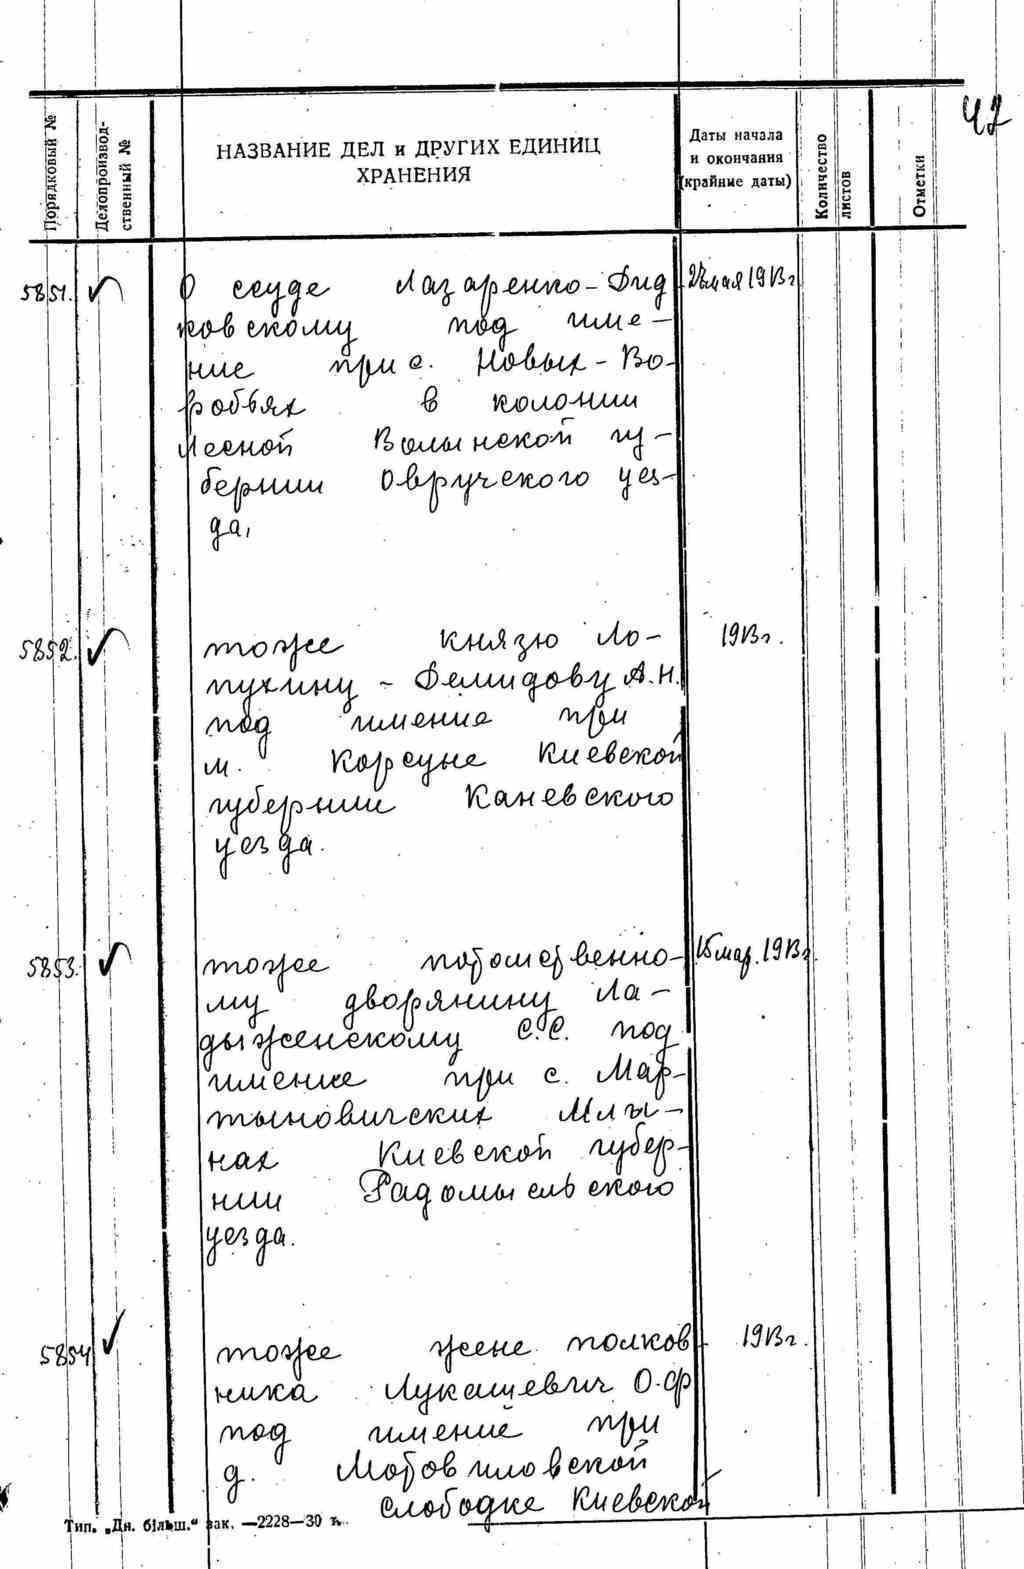 42
Порядковый №
Делопроизвод-
ственный №
НАЗВАНИЕ ДЕЛ и ДРУГИХ ЕДИНИЦ
ХРАНЕНИЯ
Даты начала
и окончания
(крайние даты)
Количество
листов
Отметки
5851. О ссуде Лазаренко-Дид
ковскому под име-
ние при с. Новых-Во-
робьях в колонии
Лесной Волынской гу-
бернии Овручского уез-
да,
мая 1913г
5852. тоже князю Ло-
пухину - Демидову А.Н.
под имение при
м. Корсуне Киевской
губернии Каневского
уезда.
1913г.
5853. тоже потомственно-
му дворянину Ла-
дыженскому С.С. под
имение при с. Мар-
тыновичских Млы-
нах Киевской губер-
нии Радомысльского
уезда.
15 мар. 1913г
5854 тоже жене полков
ника Лукашевич О.Ф
под имение при
д. Мотовиловской
слободке Киевской
1913г.
Тип. „Дн. більш." зак. —2228—30 т.